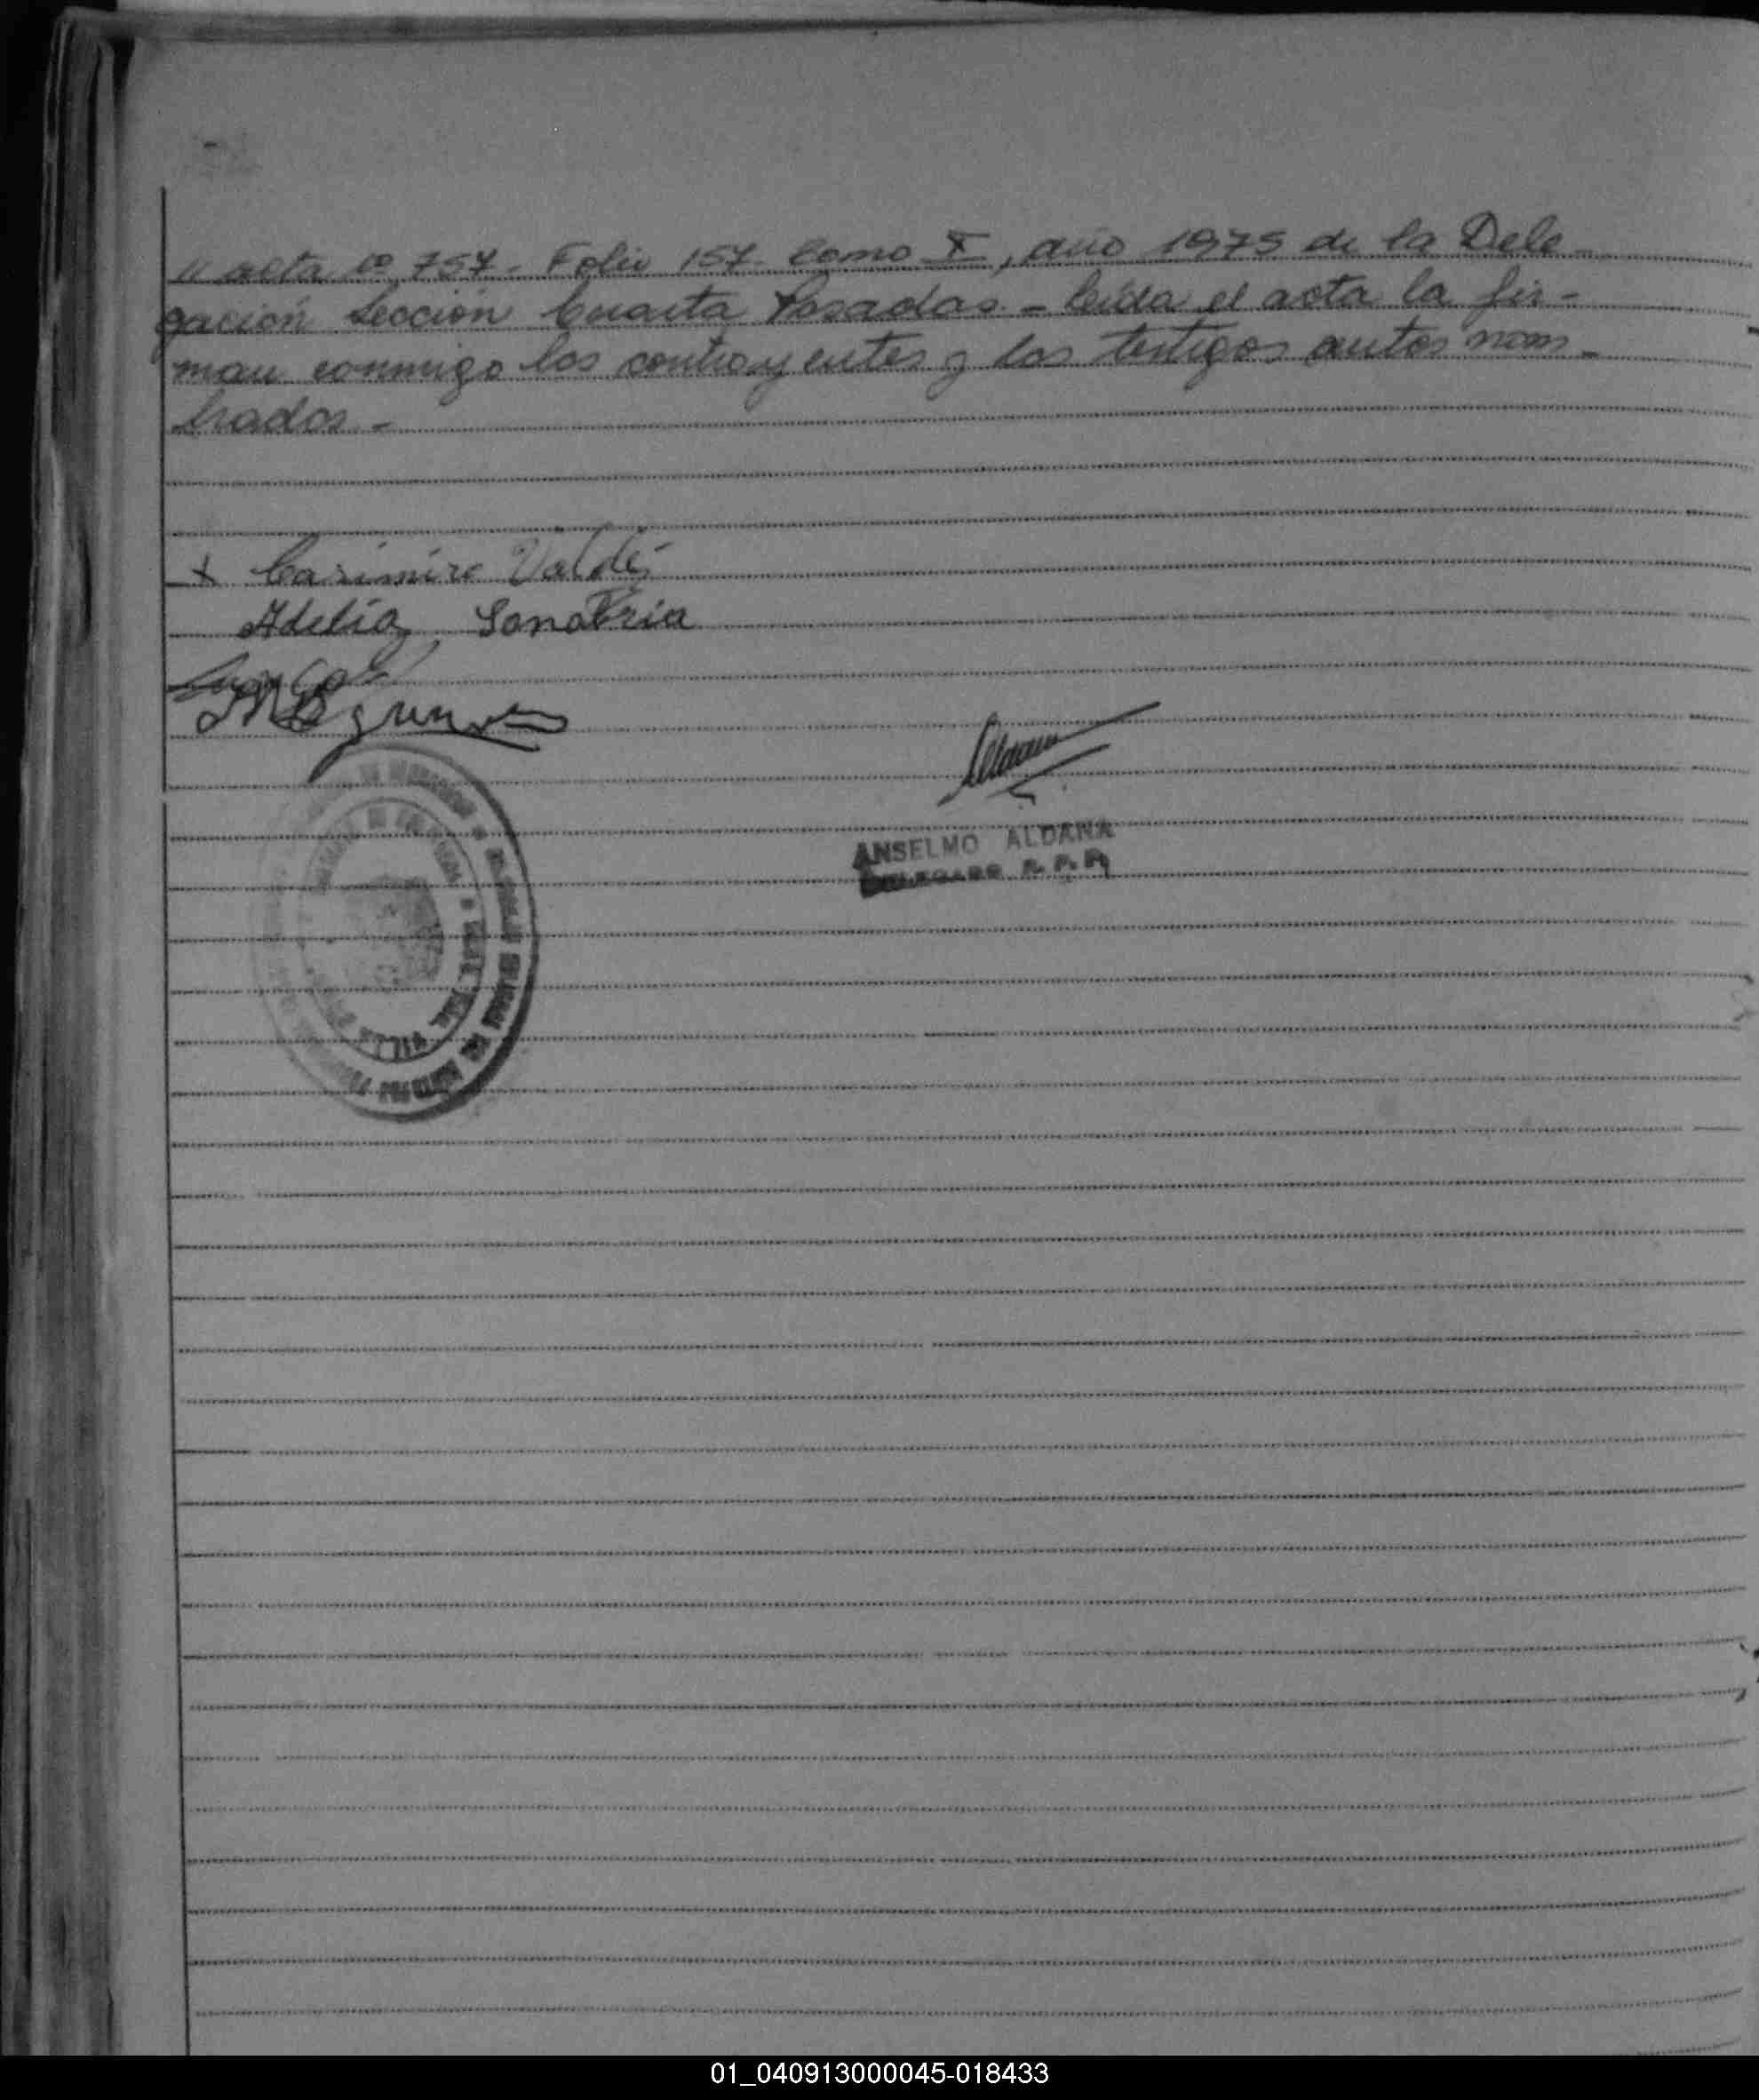 " acta nº 757. Folio 157. Tomo I, año 1975 de la Dele-
gación Sección Cuarta Posadas. - Leída el acta la fir-
man conmigo los contrayentes y los testigos antes nom-
brados. -
x Casimiro Valdés
Adelia Sanabria
ANSELMO ALDANA
DELEGADO R. P. P.
01_040913000045-018433